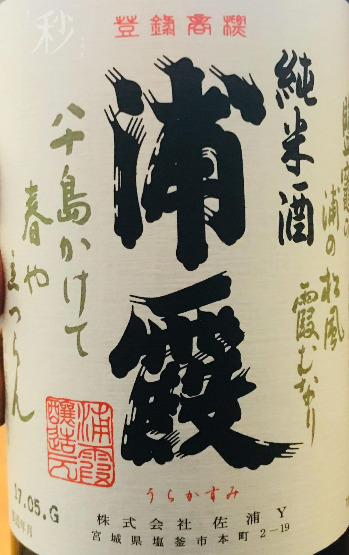 秒
登録商標
純米酒
浦霞
浦の
松風
霞むなり
八十島かけて
春や
立つらん
浦霞
醸造元
17.05.G
製造年月
うらかすみ
株式会社 佐浦 Y
宮城県塩釜市本町2-19